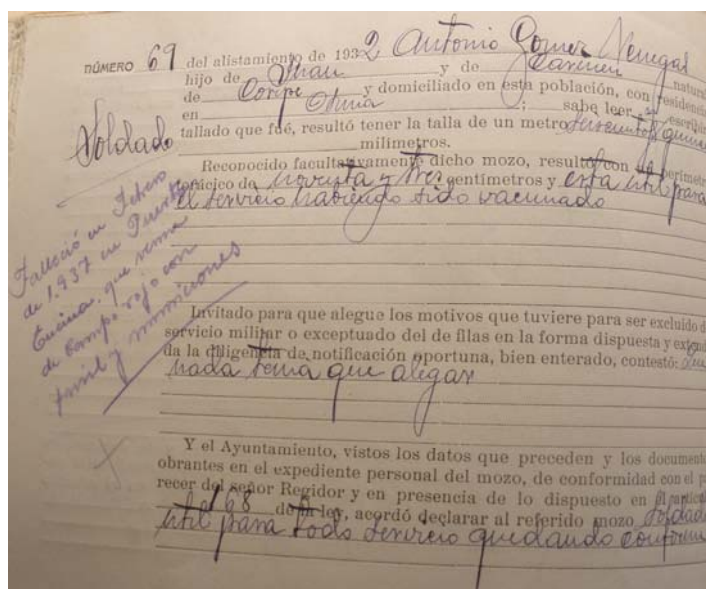 NÚMERO 69 del alistamiento de 1932 Antonio Gomez Venegas
hijo de Juan y de Carmen natur
de Coripe y domiciliado en esta población, con residenc
en Osuna ; sabe leer y escribir
Soldado
tallado que fué, resultó tener la talla de un metro seiscientos quince
milímetros.
Reconocido facultativamente dicho mozo, resultó con perímetr
torácico de noventa y tres centímetros y está útil para
el servicio habiendo sido vacunado
Falleció en Febrero
de 1.937 en Puerto
Encina, que venia
de campo rojo con
fusil y municiones
Invitado para que alegue los motivos que tuviere para ser excluido d
servicio militar o exceptuado del de filas en la forma dispuesta y extend
da la diligencia de notificación oportuna, bien enterado, contestó: que
nada tenia que alegar
Y el Ayuntamiento, vistos los datos que preceden y los document
obrantes en el expediente personal del mozo, de conformidad con el p
recer del señor Regidor y en presencia de lo dispuesto en el artícul
168 de la ley, acordó declarar al referido mozo Soldado
útil para todo servicio quedando conforme